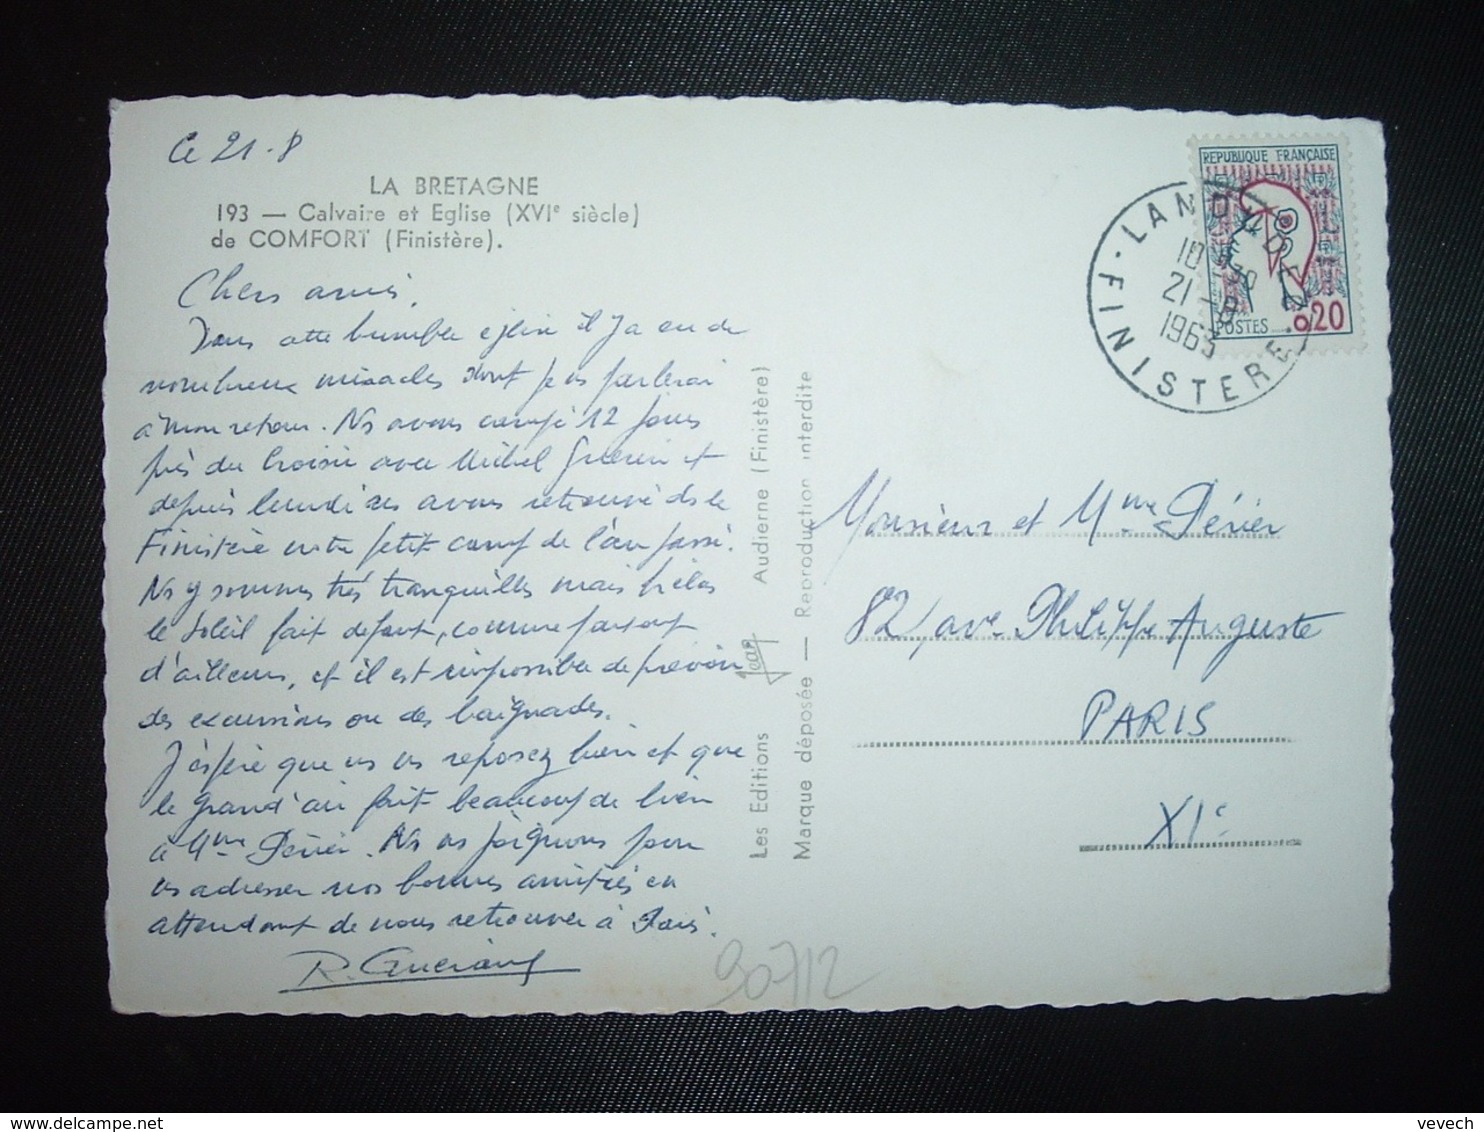 Ce 21-8
LA BRETAGNE
193 — Calvaire et Eglise (XVIe siècle)
de COMFORT (Finistère).
Chers amis,
Dans cette humble église il y a eu de
nombreux miracles dont je vs parlerai
à mon retour. Ns avons campé 12 jours
près du Croisic avec Michel Guérin et
depuis lundi ns avons retrouvé ds le
Finistère notre petit camp de l'an passé.
Ns y sommes très tranquilles mais hélas
le soleil fait défaut, comme partout
d'ailleurs, et il est impossible de prévoir
des excursions ou des baignades.
J'espère que vs vs reposez bien et que
le grand air fait beaucoup de bien
à Mme Périer. Ns ns joignons pour
vs adresser nos bonnes amitiés en
attendant de nous retrouver à Paris.
R.
90712
Les Editions Jean Audierne (Finistère)
Marque déposée — Reproduction interdite
REPUBLIQUE FRANÇAISE
POSTES 0,20
LANDUDEC
10 H30
21-8
1963
FINISTERE
Monsieur et Mme Périer
82, ave Philippe Auguste
PARIS
XIe
vevech